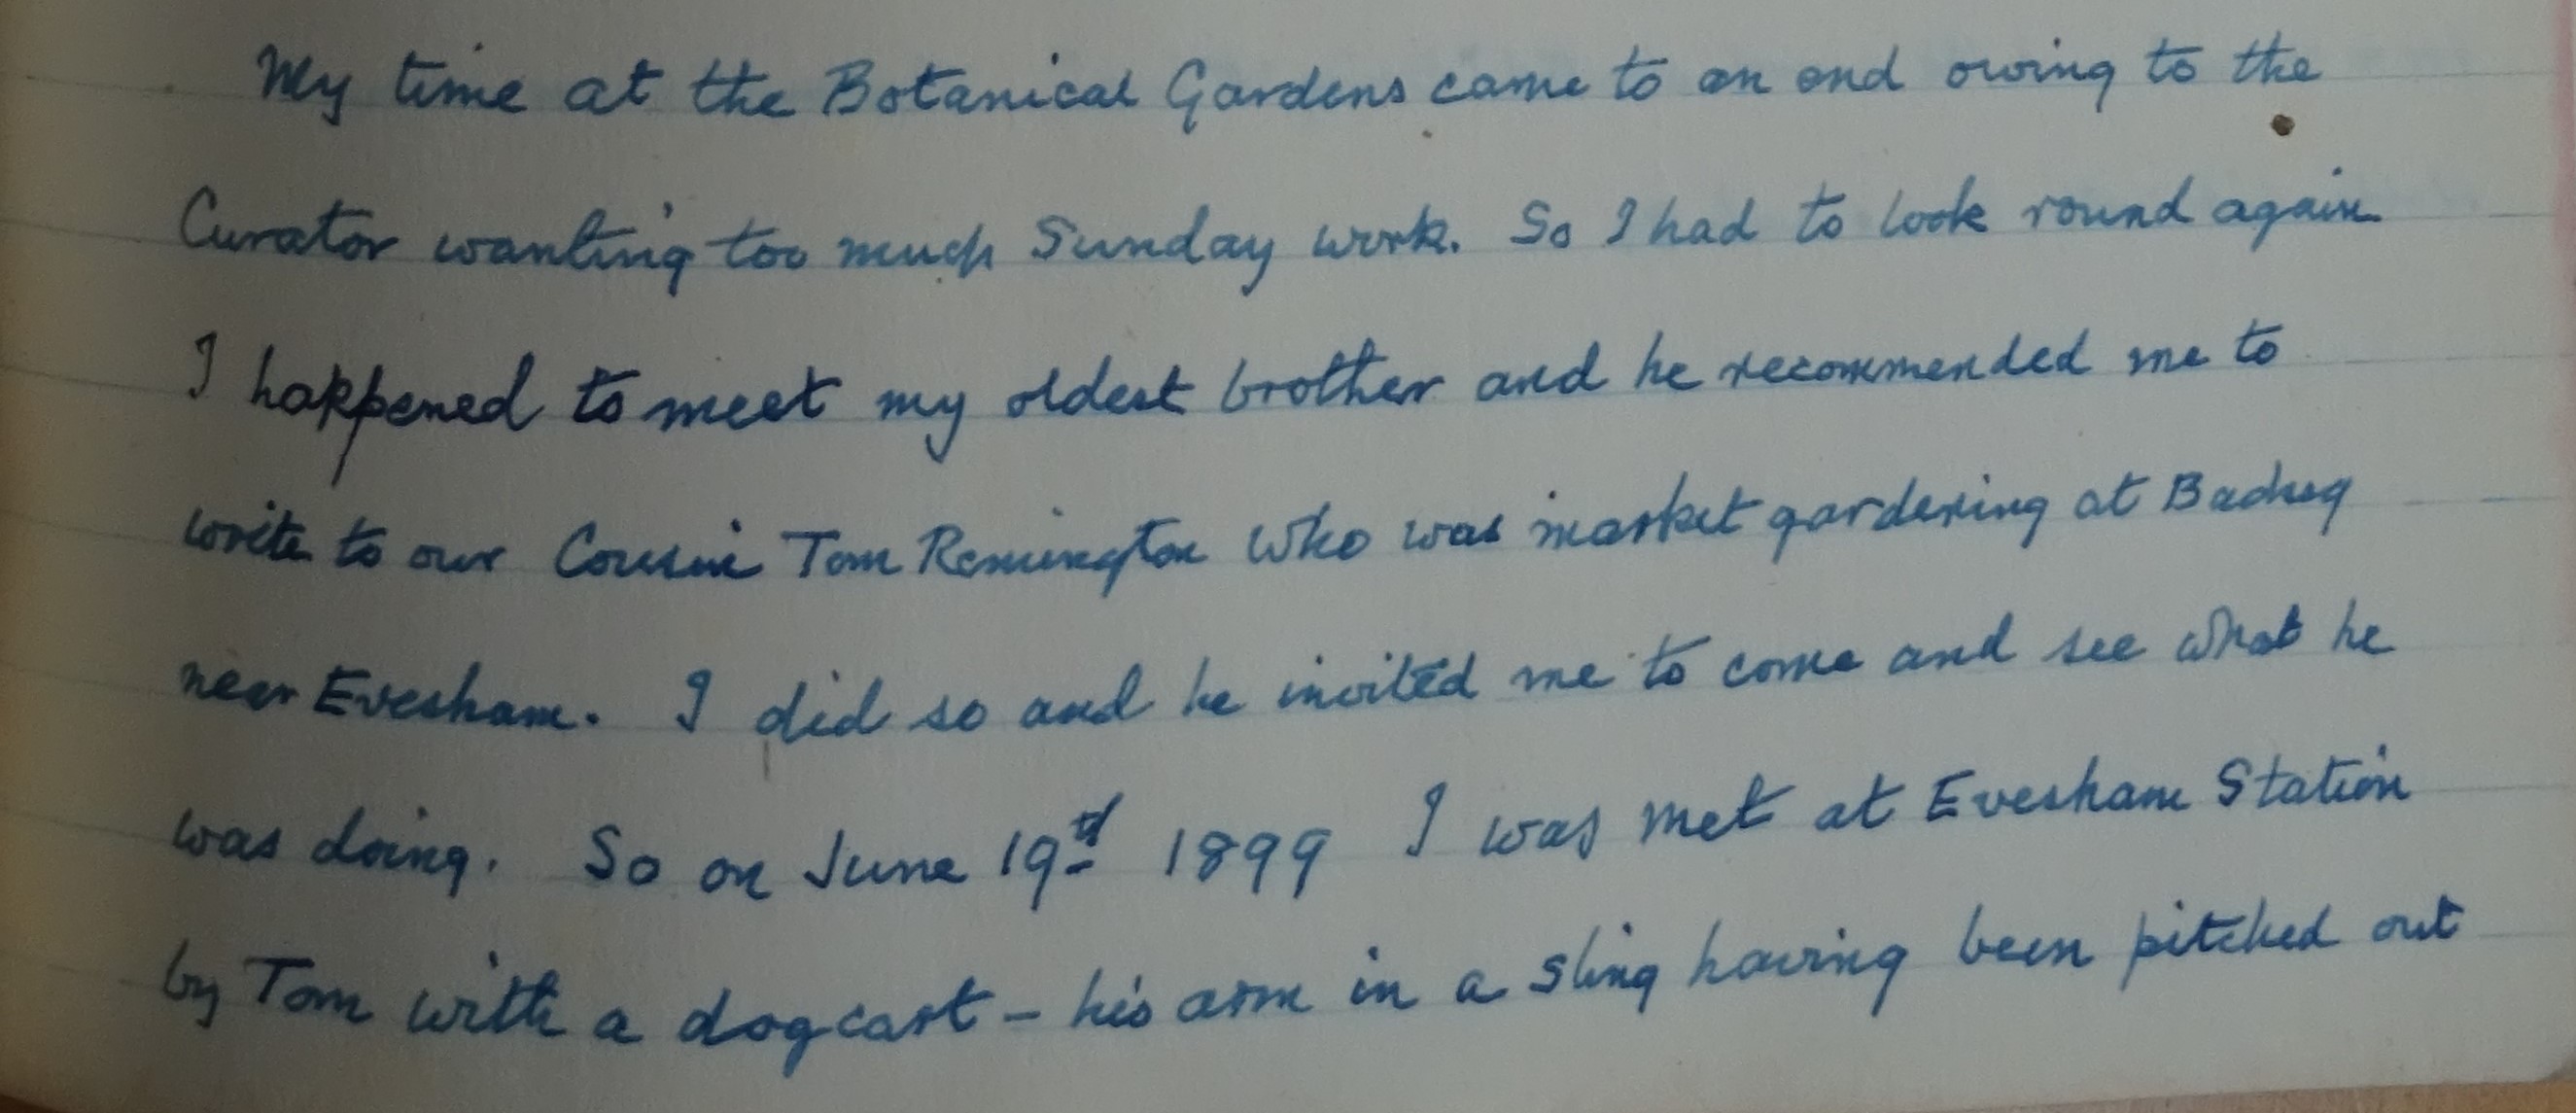 My time at the Botanical Gardens came to an end owing to the
Curator wanting too much Sunday work. So I had to look round again
I happened to meet my oldest brother and he recommended me to
write to our Cousin Tom Remington who was market gardening at Badsey
near Evesham. I did so and he invited me to come and see what he
was doing. So on June 19th 1899 I was met at Evesham Station
by Tom with a dogcart – his arm in a sling having been pitched out